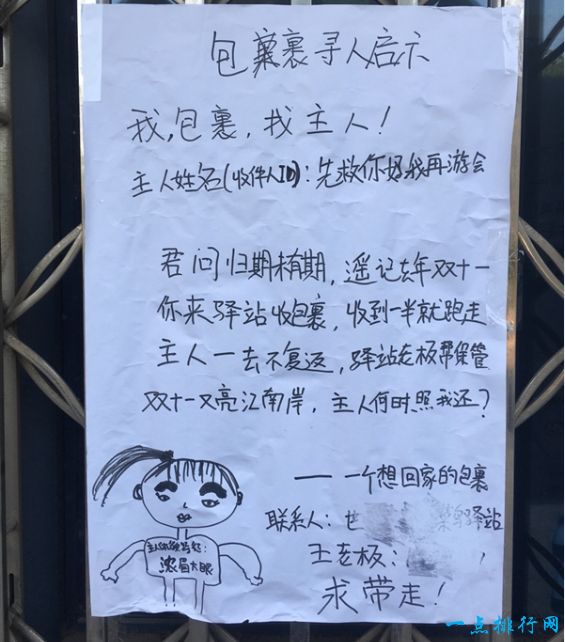 包裹寻人启示
我,包裹,找主人!
主人姓名(收件人ID):先救你好我再游会
君问归期未有期,遥记去年双十一
你来驿站收包裹,收到一半就跑走
主人一去不复返,驿站老板帮保管
双十一又亮江南岸,主人何时照我还?
——一个想回家的包裹
联系人:世 驿站
王老板:
求带走!
主人你猴写起:
浓眉大眼
一点排行网